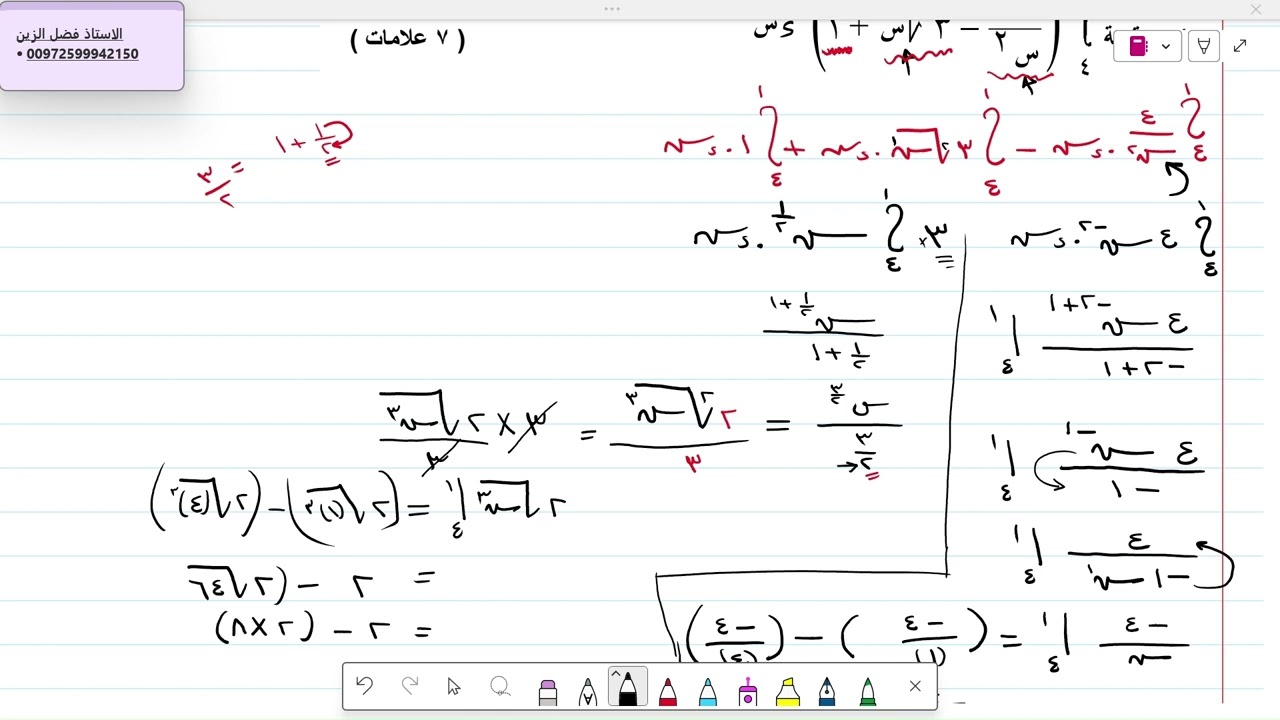 الاستاذ فضل الزين
• 00972599942150
( ٧ علامات )
٤ ( س٢ − ٣ √س + ١ ) ءس
∫ ٤ ١ ٤/س٢ . ءس − ∫ ٤ ١ ٣ √س١ . ءس + ∫ ٤ ١ ١ . ءس
١/٢ + ١
= ٣/٢
∫ ٤ ١ ٤ س−٢ . ءس
٣ × ∫ ٤ ١ س١/٢ . ءس
٤ س−٢+١ / −٢+١ | ٤ ١
س١/٢+١ / ١/٢+١
٤ س−١ / −١ | ٤ ١
س٣/٢ / ٣/٢ = ٢ ٢√س٣ / ٣ = ٣ × ٢ √س٣ / ٣
٢ √س٣ | ٤ ١ = (٢ √(١)٣) − (٢ √(٤)٣)
٤ / −١ س١ | ٤ ١
= ٢ − (٢ √٦٤
= ٢ − (٢×٨)
−٤ / س | ٤ ١ = (−٤ / (١)) − (−٤ / (٤))